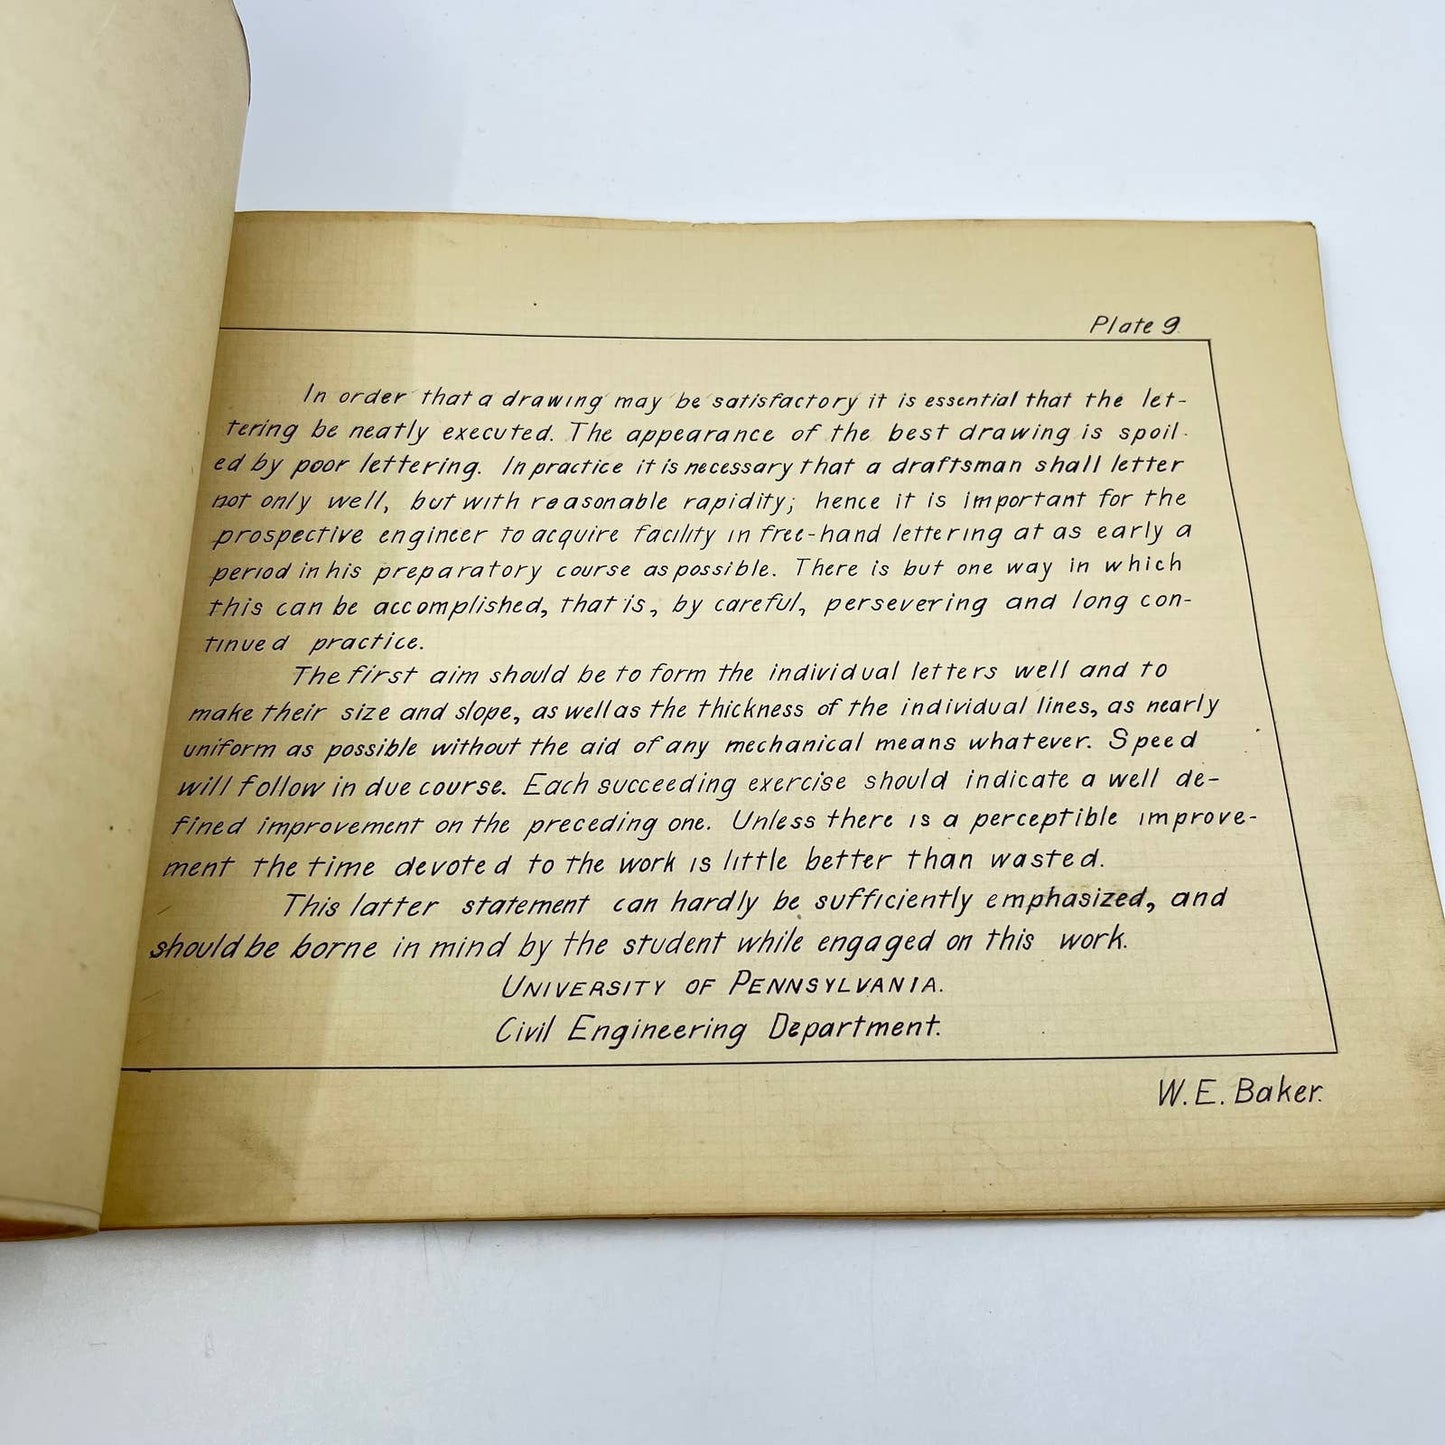 Plate 9.
In order that a drawing may be satisfactory it is essential that the let-
tering be neatly executed. The appearance of the best drawing is spoil-
ed by poor lettering. In practice it is necessary that a draftsman shall letter
not only well, but with reasonable rapidity; hence it is important for the
prospective engineer to acquire facility in free-hand lettering at as early a
period in his preparatory course as possible. There is but one way in which
this can be accomplished, that is, by careful, persevering and long con-
tinued practice.
The first aim should be to form the individual letters well and to
make their size and slope, as well as the thickness of the individual lines, as nearly
uniform as possible without the aid of any mechanical means whatever. Speed
will follow in due course. Each succeeding exercise should indicate a well de-
fined improvement on the preceding one. Unless there is a perceptible improve-
ment the time devoted to the work is little better than wasted.
This latter statement can hardly be sufficiently emphasized, and
should be borne in mind by the student while engaged on this work.
UNIVERSITY OF PENNSYLVANIA.
Civil Engineering Department.
W. E. Baker.